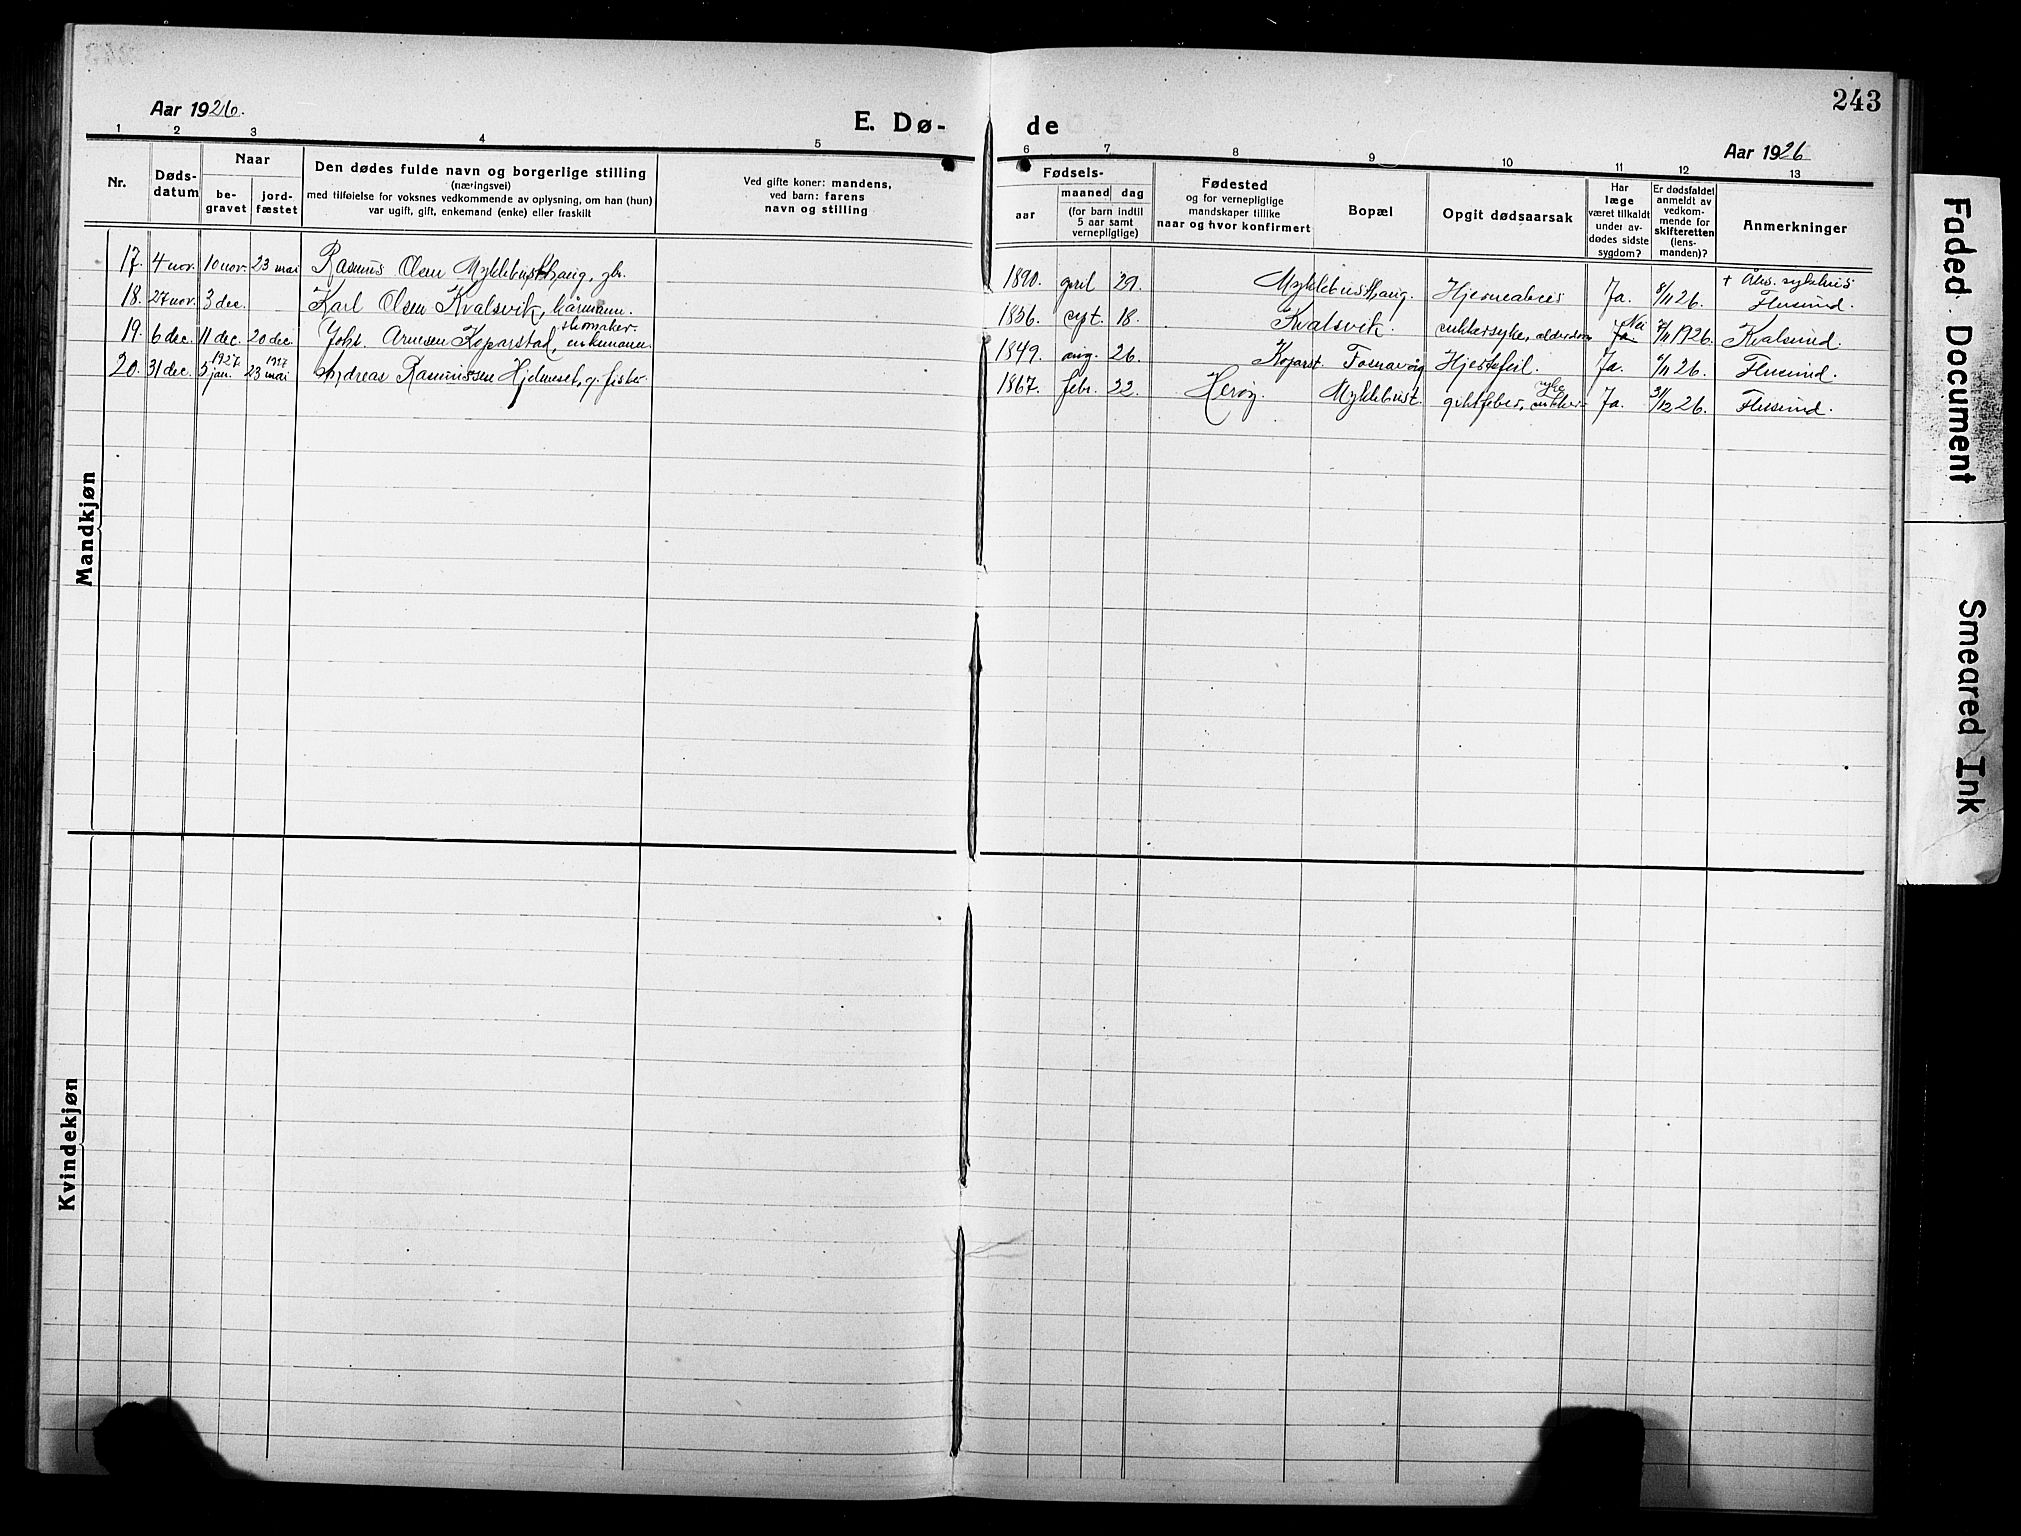 243
Aar 1926.
E. Dø-
de
Aar 1926
1 2 3 4 5 6 7 8 9 10 11 12 13
Nr.
Døds-
datum
Naar
be-
gravet
jord-
fæstet
Den dødes fulde navn og borgerlige stilling
(næringsvei)
med tilføielse for voksnes vedkommende av oplysning, om han (hun)
var ugift, gift, enkemand (enke) eller fraskilt
Ved gifte koner: mandens,
ved barn: farens
navn og stilling
Fødsels-
aar
maaned
dag
(for barn indtil
5 aar samt
vernepligtige)
Fødested
og for vernepligtige
mandskaper tillike
naar og hvor konfirmert
Bopæl
Opgit dødsaarsak
Har
læge
været tilkaldt
under av-
dødes sidste
sygdom?
Er dødsfaldet
anmeldt av
vedkom-
mende for
skifteretten
(lens-
manden)?
Anmerkninger
17. 4 nov. 10 nov. 23 mai Rasmus Olsen Myklebusthaug, gbr. 1890. april 29. Myklebusthaug. Ja. 8/11 26. + Åles. sykehus
Flusund.
18. 27 nov. 3 dec. Karl Olsen Kvalsvik, kårmann. 1856. sept. 18. Kvalsvik. sukkersyke, alderdom Ja. Nei 1926. Kvalsund.
19. 6 dec. 11 dec. 20 dec. Johs. Arnesen Koparstad, skomaker. enkemann. 1849. aug. 26. Koparst. Fosnavåg Hjertefeil. Ja. 26. Flusund.
20. 31 dec. 1927 5 jan. 1927 23 mai Andreas Rasmussen Hjelmeset, g. fisker 1867. febr. 22. Herøy. Myklebust. giktfeber, sukkersyke Ja. 31/12 26. Flusund.
Mandkjøn
Kvindekjøn
Faded Document
Smeared Ink